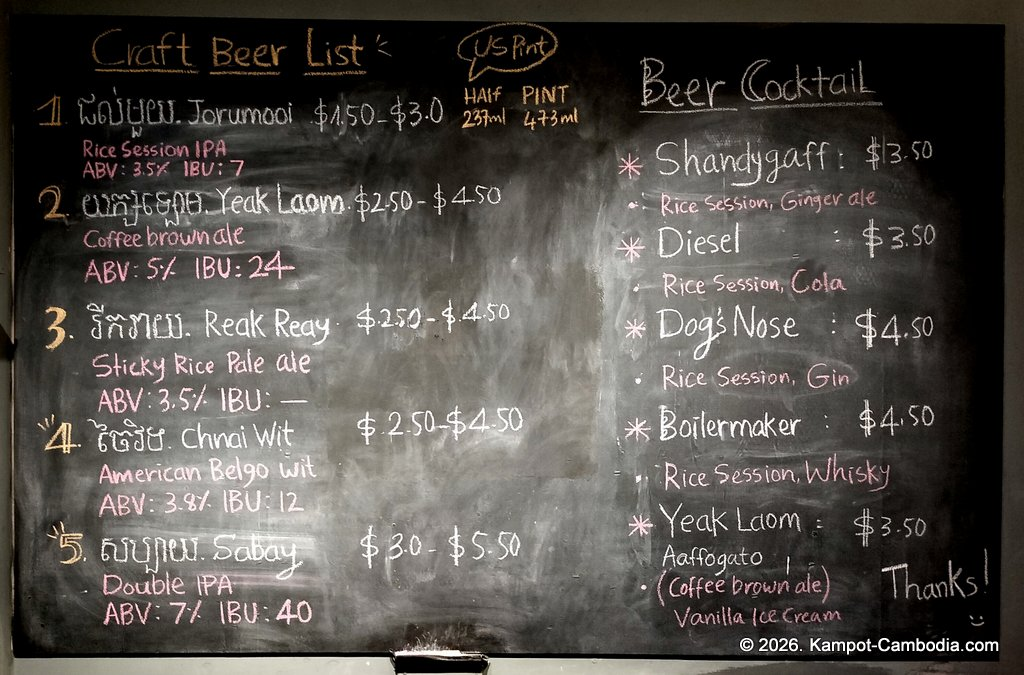 Craft Beer List
US Pint
HAlf PINT
237ml 473ml
1 ជប់មួយ. Jorumooi $1.50-$3.0
Rice Session IPA
ABV: 3.5% IBU: 7
2. យក្សឡោម. Yeak Laom. $2.50 - $4.50
Coffee brown ale
ABV: 5% IBU: 24
3. រីករាយ. Reak Reay. $2.50 - $4.50
Sticky Rice Pale ale
ABV: 3.5% IBU: —
4. ឆ្នៃវិท. Chnai Wit $2.50-$4.50
American Belgo wit
ABV: 3.8% IBU: 12
5. សប្បាយ. Sabay $3.0 - $5.50
Double IPA
ABV: 7% IBU: 40
Beer Cocktail
* Shandygaff: $3.50
• Rice Session, Ginger ale
* Diesel : $3.50
• Rice Session, Cola
* Dog's Nose : $4.50
• Rice Session, Gin
* Boilermaker : $4.50
• Rice Session, Whisky
* Yeak Laom : $3.50
Aaffogato
• (Coffee brown ale)
Vanilla Ice Cream
Thanks!
© 2026. Kampot-Cambodia.com